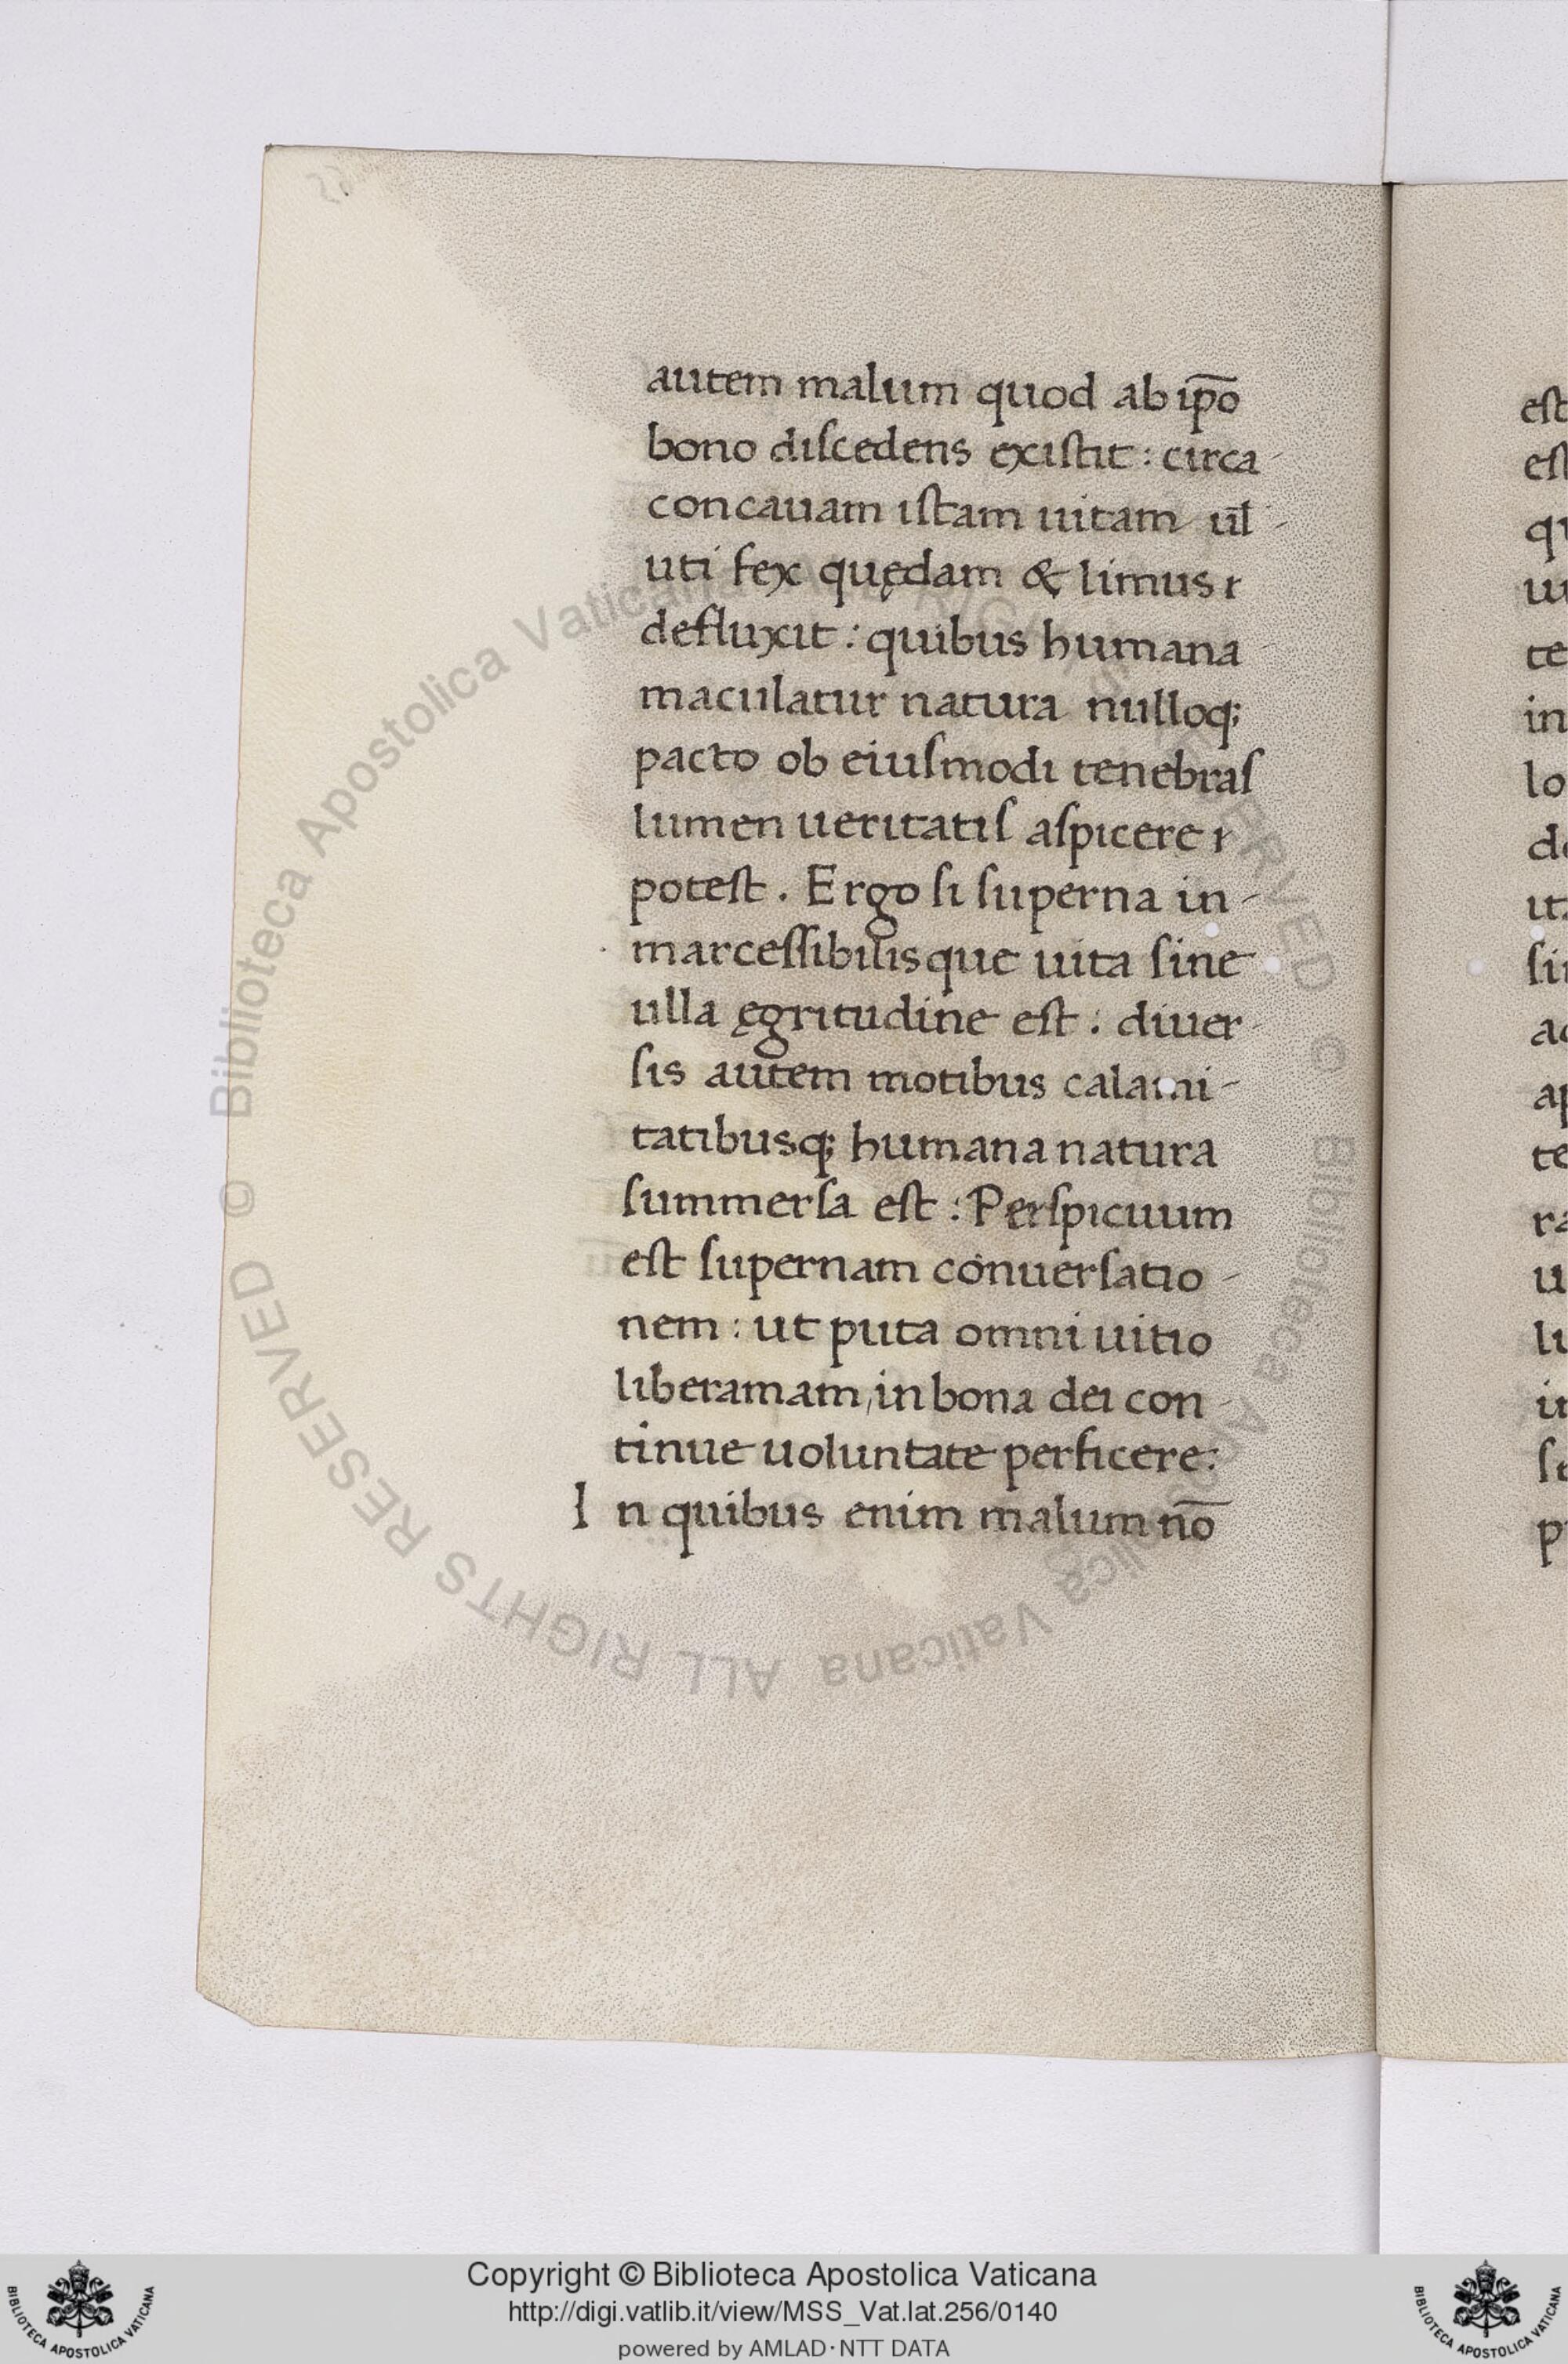 autem malum quod ab ip̄o
bono discedens existit : circa
concauam istam uitam ul̄
uti fex quędam & limus
defluxit : quibus humana
maculatur natura nulloq;
pacto ob eiusmodi tenebras
lumen ueritatis aspicere
potest . Ergo si superna in-
marcessibilisque uita sine
ulla ęgritudine est : diuer-
sis autem motibus calami-
tatibusq; humana natura
summersa est : Perspicuum
est supernam conuersatio-
nem : ut puta omni uitio
liberamam, in bona dei con-
tinue uoluntate perficere :
In quibus enim malum nō
est
est
qu
te
in
lo
de
ita
ac
te
ra
in
Copyright © Biblioteca Apostolica Vaticana
http://digi.vatlib.it/view/MSS_Vat.lat.256/0140
powered by AMLAD·NTT DATA
BIBLIOTECA APOSTOLICA VATICANA
BIBLIOTECA APOSTOLICA VATICANA
© Biblioteca Apostolica Vaticana ALL RIGHTS RESERVED © Biblioteca Apostolica Vaticana ALL RIGHTS RESERVED